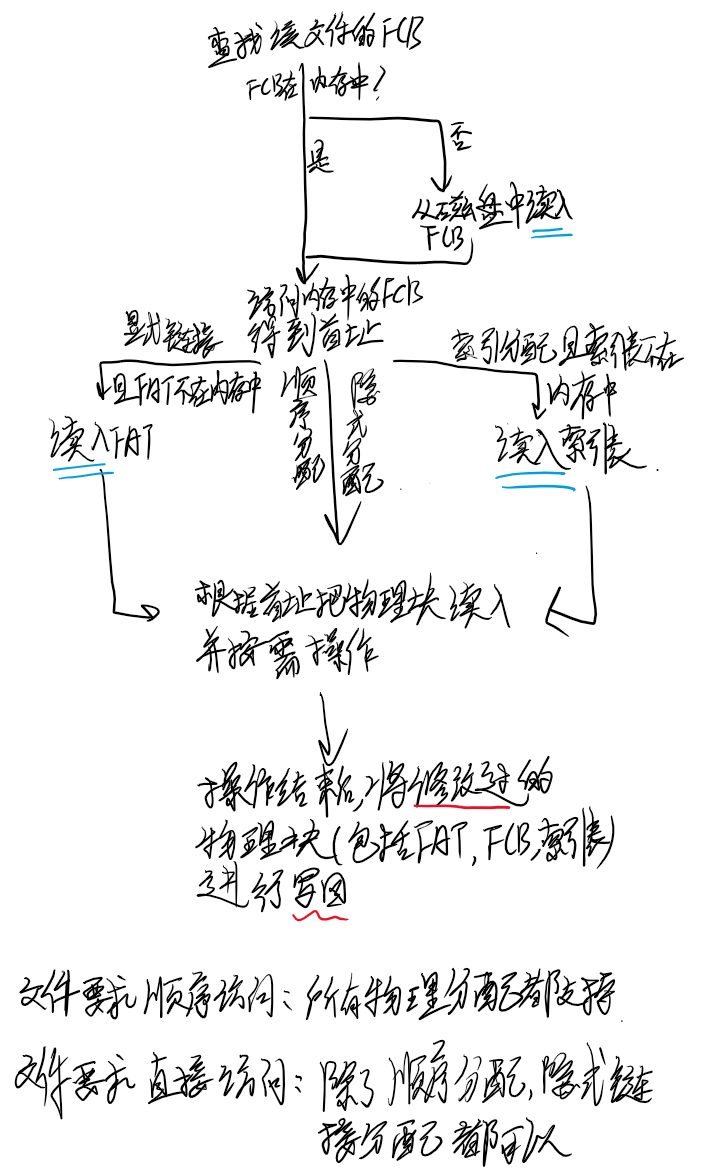 查找该文件的FCB
FCB在内存中?
是
否
从磁盘中读入
FCB
访问内存中的FCB
得到首址
显式链接
且FAT不在内存中
读入FAT
顺序分配
隐式分配
索引分配且索引表不在
内存中
读入索引表
根据首址把物理块读入
并按需操作
操作结束后,将修改过的
物理块(包括FAT,FCB,索引表)
进行写回
文件要求顺序访问:所有物理分配都支持
文件要求直接访问:除了顺序分配,隐式链
接分配都可以